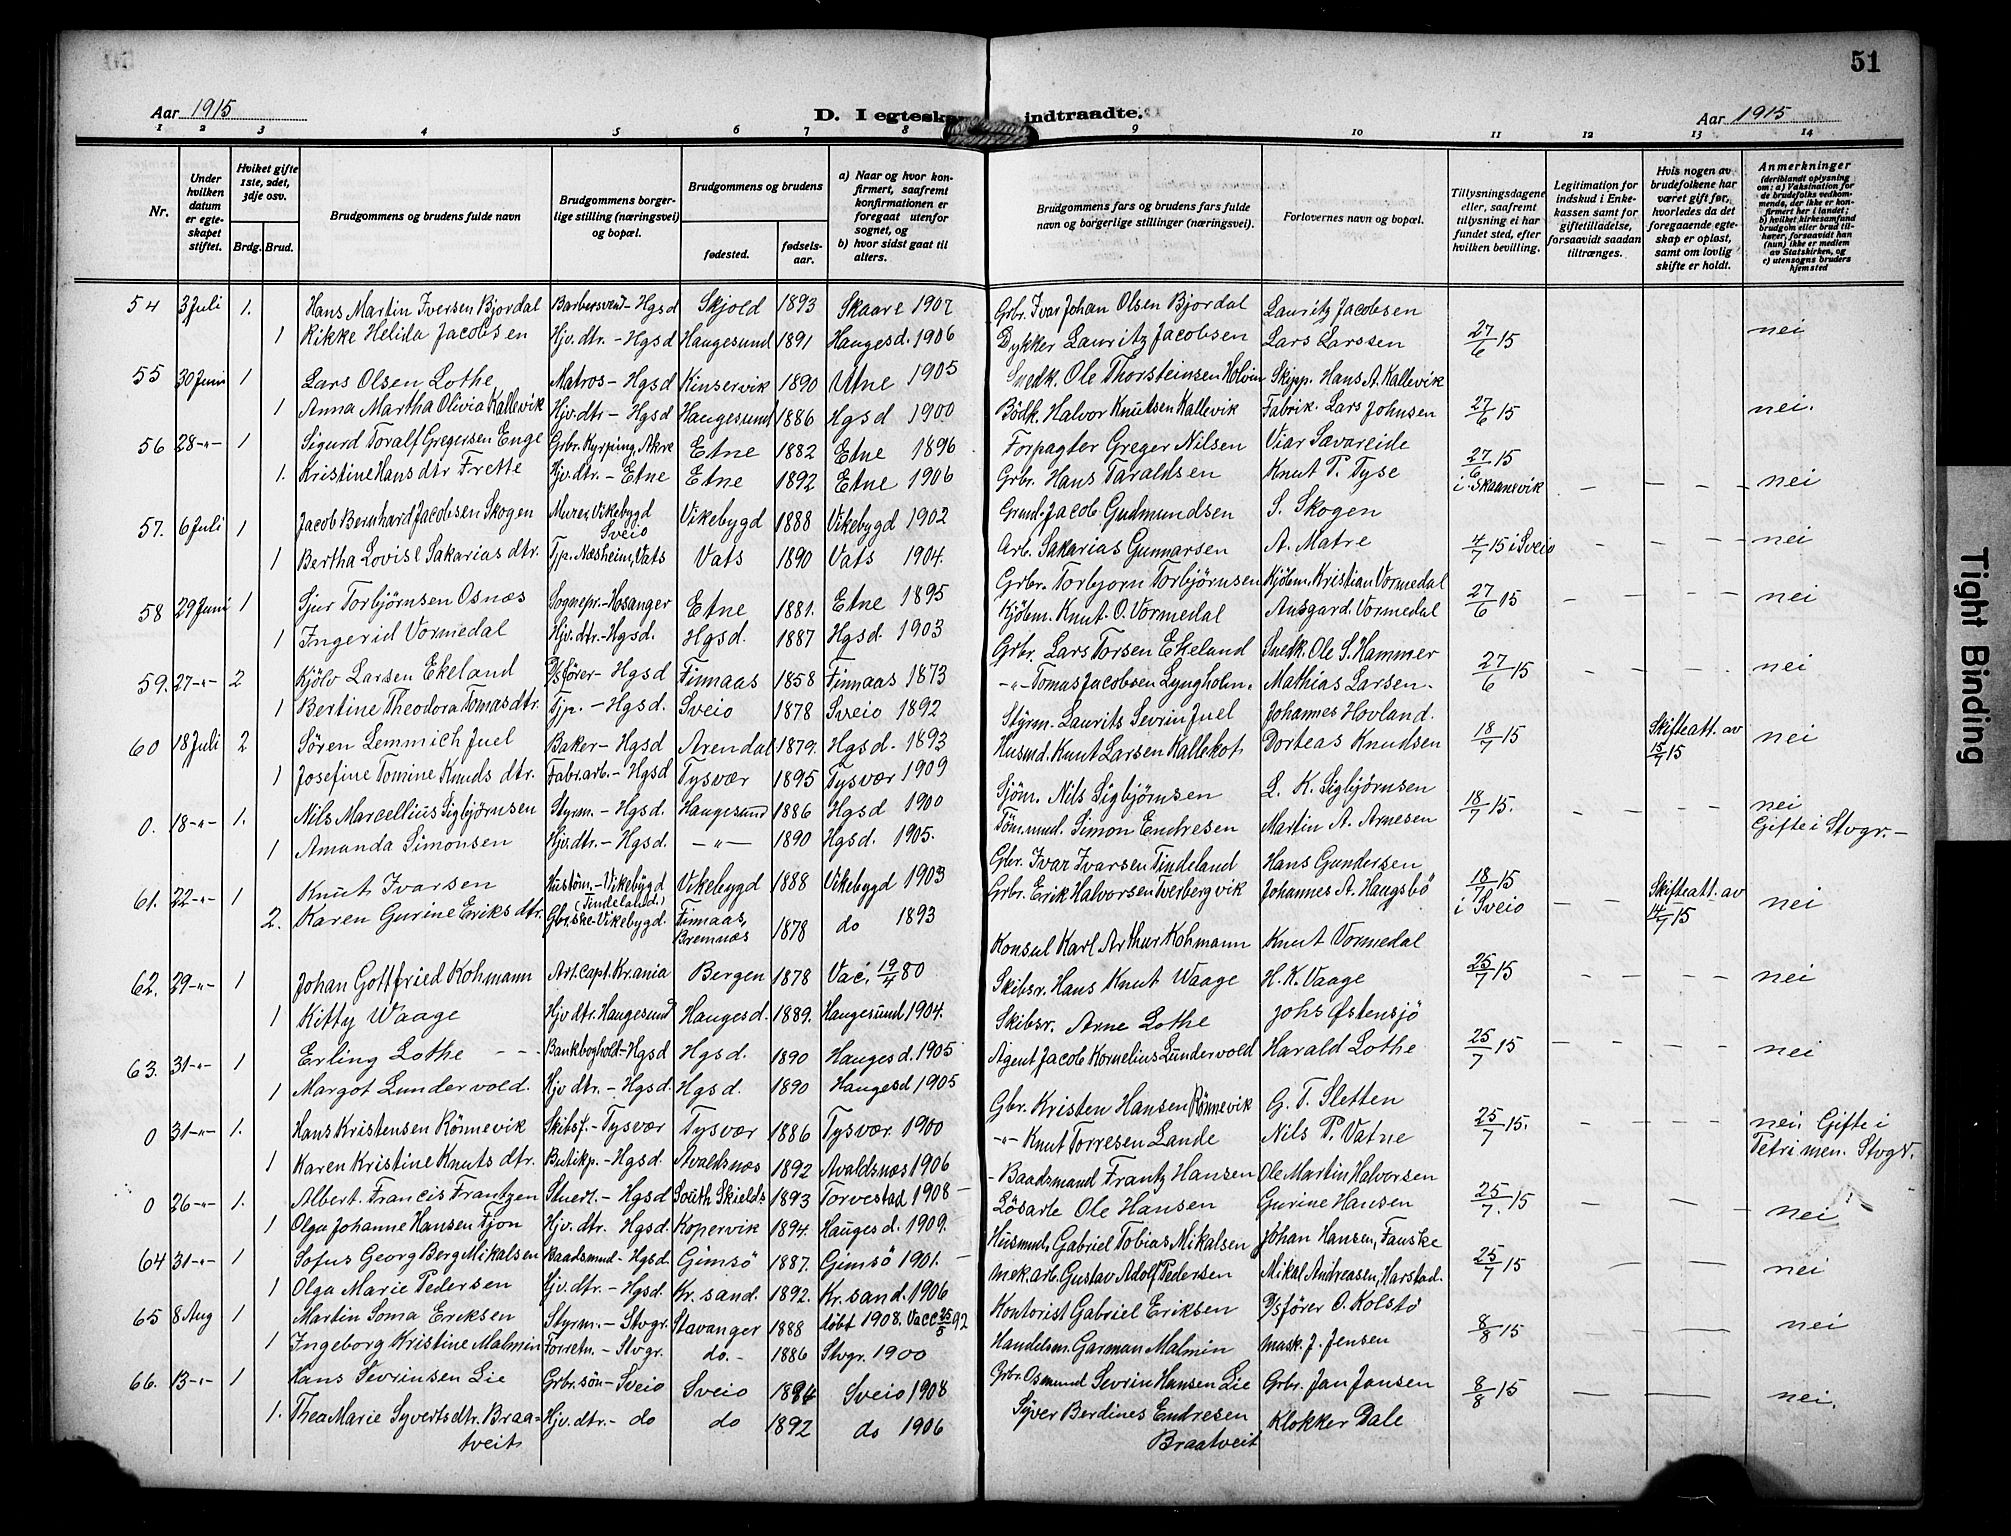 51
Aar 1915
D. I egteska indtraadte.
Aar 1915
1 2 3 4 5 6 7 8 9 10 11 12 13 14
Nr.
Under hvilken datum er egteskapet stiftet.
Hvilket gifte 1ste, 2det, 3dje osv.
Brdg. Brud.
Brudgommens og brudens fulde navn
Brudgommens borgerlige stilling (næringsvei) og bopæl.
Brudgommens og brudens
fødested.
fødselsaar.
a) Naar og hvor konfirmert, saafremt konfirmationen er foregaat utenfor sognet, og
b) hvor sidst gaat til alters.
Brudgommens fars og brudens fars fulde navn og borgerlige stillinger (næringsvei).
Forlovernes navn og bopæl.
Tillysningsdagene eller, saafremt tillysning ei har fundet sted, efter hvilken bevilling.
Legitimation for indskud i Enkekassen samt for giftetilladelse, forsaavidt saadan tiltrænges.
Hvis nogen av brudefolkene har været gift før, hvorledes da det foregaaende egteskap er opløst, samt om lovlig skifte er holdt.
Anmerkninger
(deriblandt oplysning om: a) Vaksination for de brudefolks vedkommende, der ikke er konfirmert her i landet; b) hvilket kirkesamfund brudgom eller brud tilhører, forsaavidt han (hun) ikke er medlem av Statskirken, og c) utensogns bruders hjemsted
54 3 Juli 1. Hans Martin Iversen Bjordal Barbersvend - Hgsd Skjold 1893 Skaare 1907 Grbr. Ivar Johan Olsen Bjordal Lauritz Jacobsen
1 Rikke Helida Jacobsen Hjv.dtr. - Hgsd Haugesund 1891 Haugesd. 1906 Dykker Lauritz Jacobsen Lars Larssen 27/6 15 nei
55 30 Juni 1 Lars Olsen Lothe Matros - Hgsd Kinservik 1890 Utne 1905 Snedk. Ole Thorsteinsen Holvin Skipp. Hans A. Kallevik
1 Anna Martha Olivia Kallevik Hjv.dtr - Hgsd Haugesund 1886 Hgsd 1900 Bödk. Halvor Knutsen Kallevik Fabrik. Lars Johnsen 27/6 15 nei.
56 28 -"- 1 Sigurd Toralf Gregersen Enge Grbr. Kyrping, Akre Etne 1882 Etne 1896 Forpagter Greger Nilsen Viar Savareide
1. Kristine Hansdtr Frette Hjv.dtr. - Etne Etne 1892 Etne 1906 Grbr. Hans Taraldsen Knut P. Tyse 27/6 15 i Skaanevik - - - - nei
57. 6 Juli 1 Jacob Bernhard Jacobsen Skogen Murer, Vikebygd Sveio Vikebygd 1888 Vikebygd 1902 Grmd. Jacob Gudmundsen S. Skogen
1 Bertha Lovise Sakarias dtr. Tjp. Næsheim, Vats Vats 1890 Vats 1904. Arb. Sakarias Gunnarsen A. Matre 4/7 15 i Sveio - - - - nei
58 29 Juni 1 Sjur Torbjørnsen Osnæs Sognepr. - Hosanger Etne 1881. Etne 1895 Grbr. Torbjorn Torbjörnsen Kjöbm. Kristian Vormedal
1 Ingerid Vormedal Hjv.dtr. - Hgsd. Hgsd. 1887 Hgsd. 1903 Kjöbm. Knut. O. Vormedal Ansgard. Vormedal 27/6 15 - - - - nei
59. 27 -"- 2 Kjölv Larsen Ekeland D/S förer - Hgsd Finnaas 1858 Finnaas 1873 Grbr. Lars Torsen Ekeland Snedk. Ole S. Hammer
1 Bertine Theodora Tomasdtr. Tjp. - Hgsd. Sveio 1878 Sveio 1892 -"- Tomas Jacobsen Lyngholm. Mathias Larsen. 27/6 15 - - - - nei
60 18 Juli 2 Sören Lemmich Juel Baker - Hgsd Arendal 1879. Hgsd. 1893 Styrm. Laurits Sevrin Juel Johannes Hovland.
1 Josefine Tomine Knuds dtr. Fabr.arb. - Hgsd Tysvær 1895 Tysvær 1909 Husmd. Knut Larsen Kallekot Dorteas Knudsen 18/7 15 Skifteatt. av 15/7 15 nei
0. 18 -"- 1. Nils Marcellius Sigbjörnsen Styrm. - Hgsd. Haugesund 1886 Hgsd 1900 Sjöm. Nils Sigbjörnsen L. K. Sigbjörnsen
1 Amanda Simonsen Hjv.dtr. - Hgsd. -"- 1890 Hgsd. 1905. Tömmd. Simon Endresen Martin A. Arnesen 18/7 15. - - - - nei Gifte i Stvgr. -
61. 22 -"- 1 Knut Ivarsen Hustöm. - Vikebygd (Tindeland.) Vikebygd 1888 Vikebygd 1903 Gbr. Ivar Ivarsen Tindeland Hans Gundersen
2. Karen Gurine Eriks dtr. Gbr.ske - Vikebygd. Finnaas, Bremnæs 1878 do 1893 Grbr. Erik Halvorsen Tverbergvik Johannes A. Haugsbö 18/7 15 i Sveio - - Skifteatt. av 14/7 15 nei
62. 29 -"- 1 Johan Gottfried Kohmann Art.Capt. Kr.ania Bergen 1878 Vac. 19/4 80 Konsul Karl Arthur Kohmann Knut Vormedal
1 Kitty Waage Hjv.dtr. Haugesund Haugesd. 1889. Haugesund 1904. Skibsr. Hans Knut Waage H. K. Vaage 25/7 15 - - - - nei
63. 31 -"- 1 Erling Lothe - - - Bankboghold - Hgsd Hgsd. 1890 Haugesd. 1905 Skibsr. Arne Lothe Johs Østensjö
1 Margot Lundervold. Hjv.dtr. - Hgsd. Hgsd. 1890 Haugesd 1905 Agent Jacob Kornelius Lundervold Harald Lothe 25/7 15 - - - - nei
0 31 -"- 1. Hans Kristensen Rönnevik Skibsf. - Tysvær Tysvær 1886 Tysvær. 1900 Gbr. Kristen Hansen Rönnevik G. T. Sletten
1 Karen Kristine Knuts dtr. Butikp. - Hgsd. Avaldsnæs 1892 Avaldsnæs 1906 -"- Knut Torresen Lande Nils P. Vatne 25/7 15. - - - - nei. Gifte i Petri men. Stvgr.
0 26 -"- 1. Albert. Francis Frantzen Stuert. - Hgsd South Skields. 1893 Torvestad 1908 - - Baadsmand Frantz Hansen Ole Martin Halvorsen
1 Olga Johanne Hansen Tjon Hjv.dtr. Hgsd. Kopervik 1894. Haugesd. 1909. Lösarb. Ole Hansen Gurine Hansen 25/7. 15 - - - nei
64 31 -"- 1 Sofus Georg Berg Mikalsen Baadsmnd - Hgsd Gimsö 1887. Gimsö 1901. - Husmnd, Gabriel Tobias Mikalsen Johan Hansen, Fauske
1 Olga Marie Pedersen Hjv.dtr. - Hgsd. Kr.sand. 1892. Kr.sand. 1906 Mek.arb. Gustav Adolf Pedersen Mikal Andreasen, Harstad. 25/7 15 - - nei
65 8 Aug 1 Martin Soma Eriksen Styrm. - Stvgr. Stavanger 1888 döbt 1908. Vacc 25/5 92 Kontorist Gabriel Eriksen D/S förer O. Kolstö
1 Ingeborg Kristine Malmin Forretn. - Stvgr. do. - 1886 Stvgr. 1900 Handelsm. Garman Malmin Mask. J. Jensen 8/8 15 - - nei
66. 13 -"- 1 Hans Sevrinsen Lie Grbr.sön - Sveio Sveio 1894 Sveio 1908 Grbr. Osmund Sevrin Hansen Lie Grbr. Jan Jansen
1. Thea Marie Syvertsdtr. Braatveit Hjv.dtr. - do do 1892 do 1906 Syver Berdines Endresen Braatveit Klokker Dale 8/8 15 - - nei.
Tight Binding